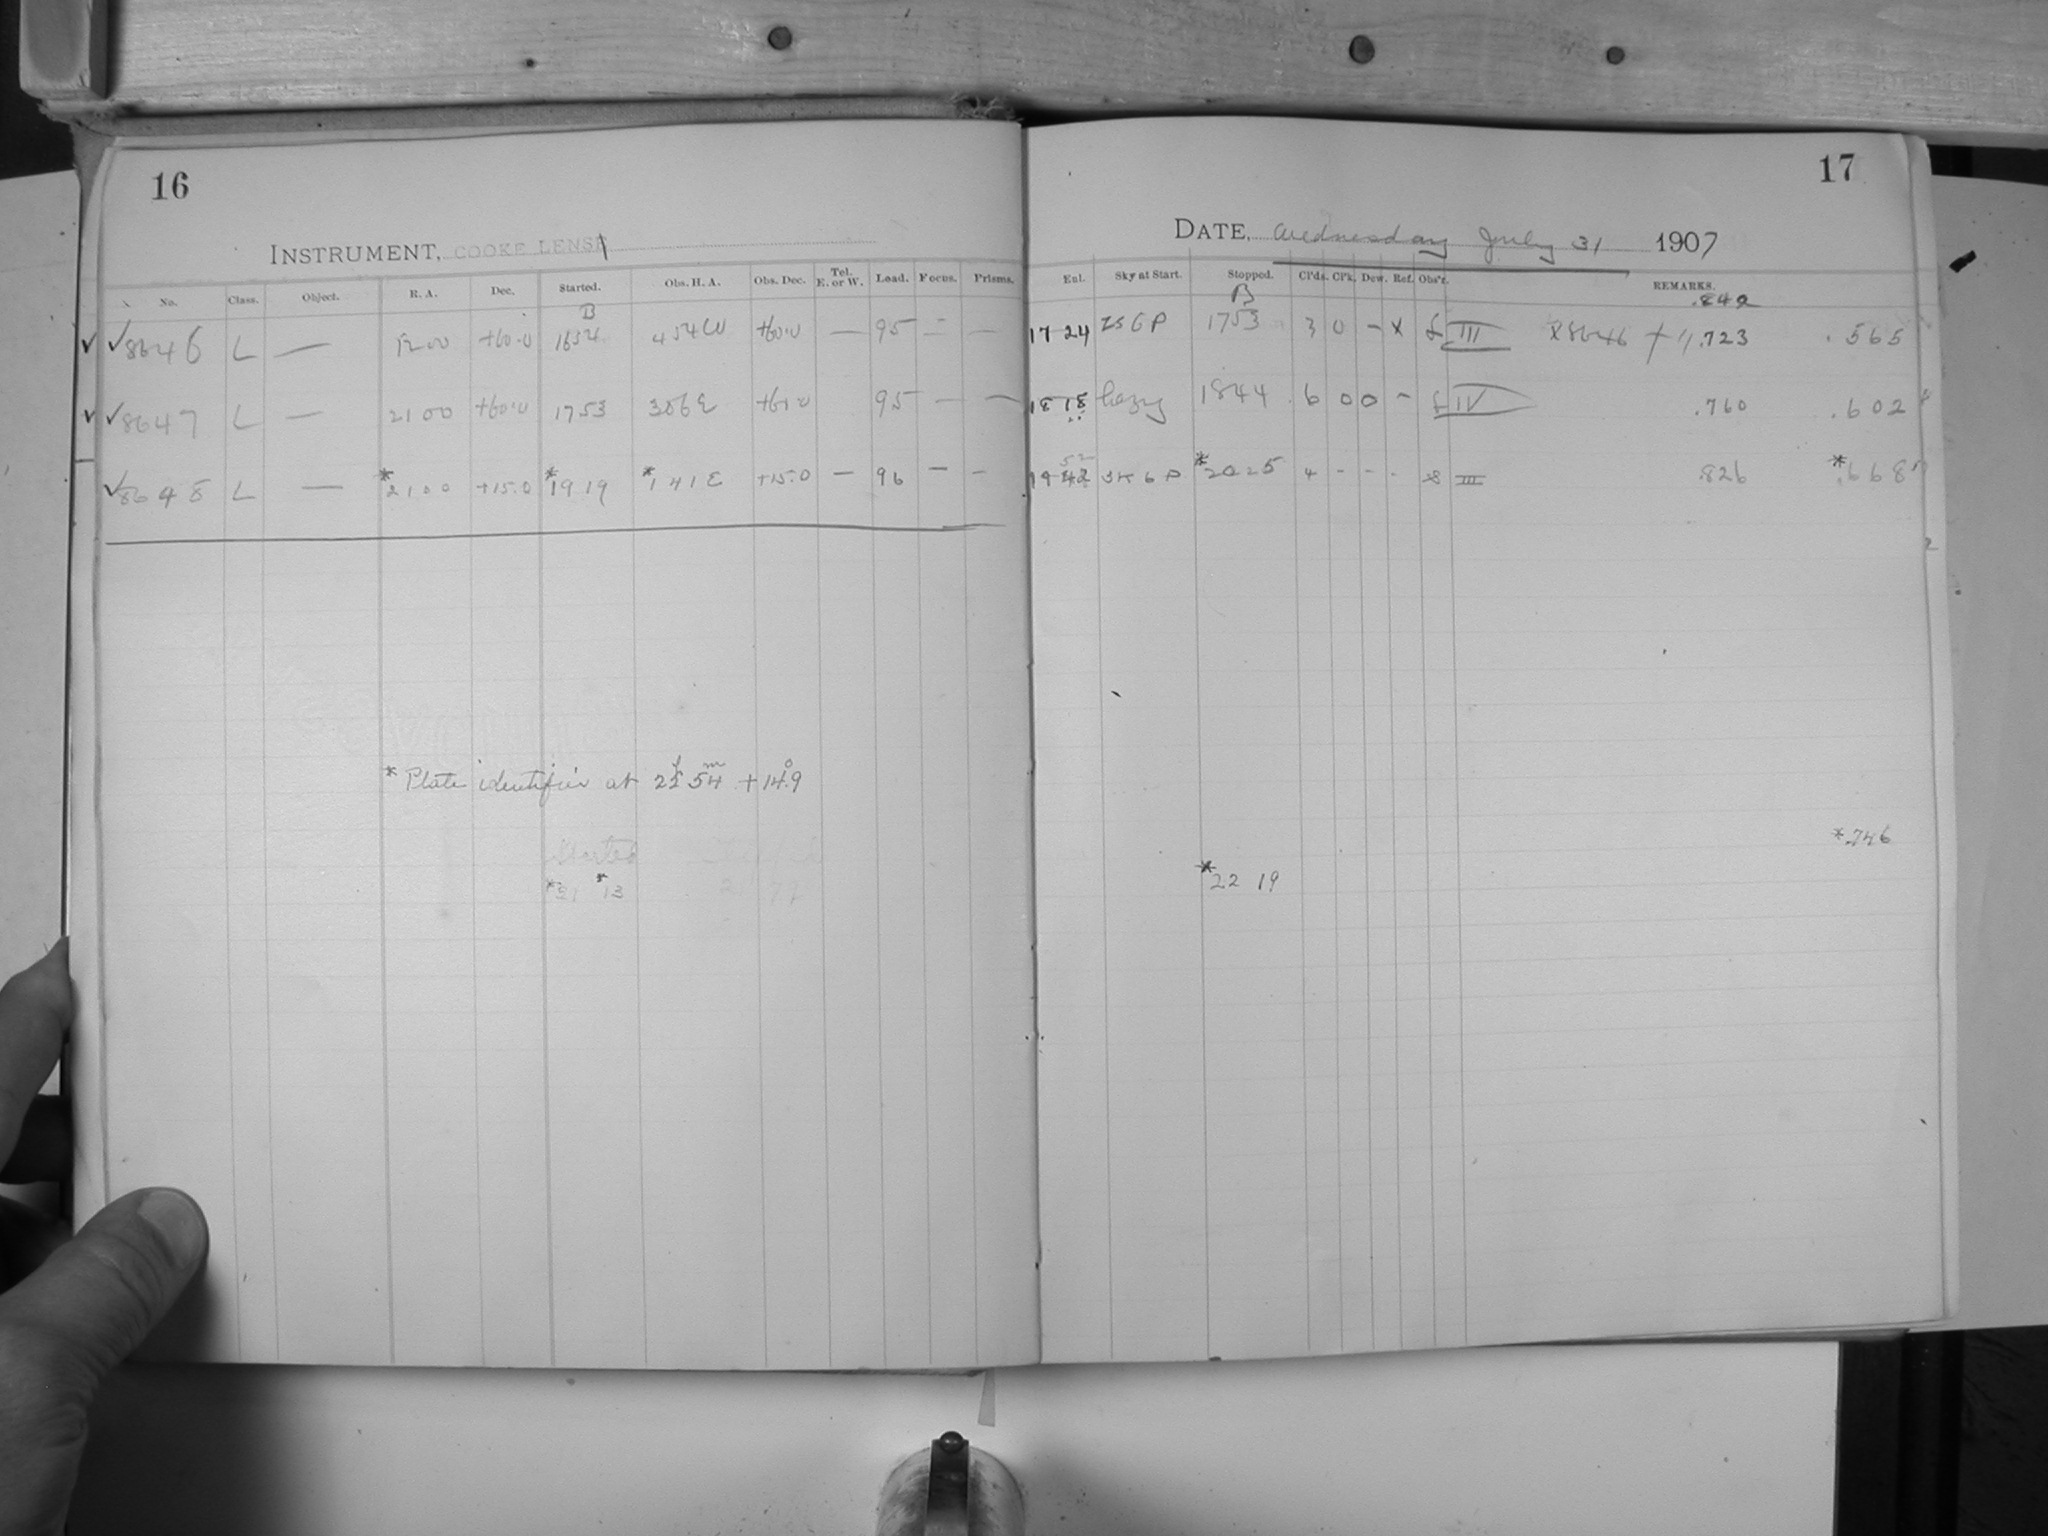 16
INSTRUMENT, COOKE LENSE
No. Class. Object. R. A. Dec. Started. Obs. H. A. Obs. Dec. Tel. E. or W. Load. Focus. Prisms.
B
✓ ✓ 8646 L — 1200 +60.0 1634 454W +60.0 — 95 — —
✓ ✓ 8647 L — 2100 +60.0 1753 306E +60.0 95 — —
✓ 8648 L — *2100 +15.0 *1919 *141E +15.0 — 96 — —
* Plate identified at 21h 54m +14.9
Started
17
DATE, Wednesday July 31 1907
Enl. Sky at Start. Stopped. Cl'ds. Cl'k. Dew. Ref. Obs'r. REMARKS.
B .842
17 24 ZS6P 1753 3 0 – X £ III X8646 .723 .565
18 18 hazy 1844 6 0 0 – £ IV .760 .602
52
19 42 3S6P *2025 4 - - - III .826 *.668
*.746
*22 19